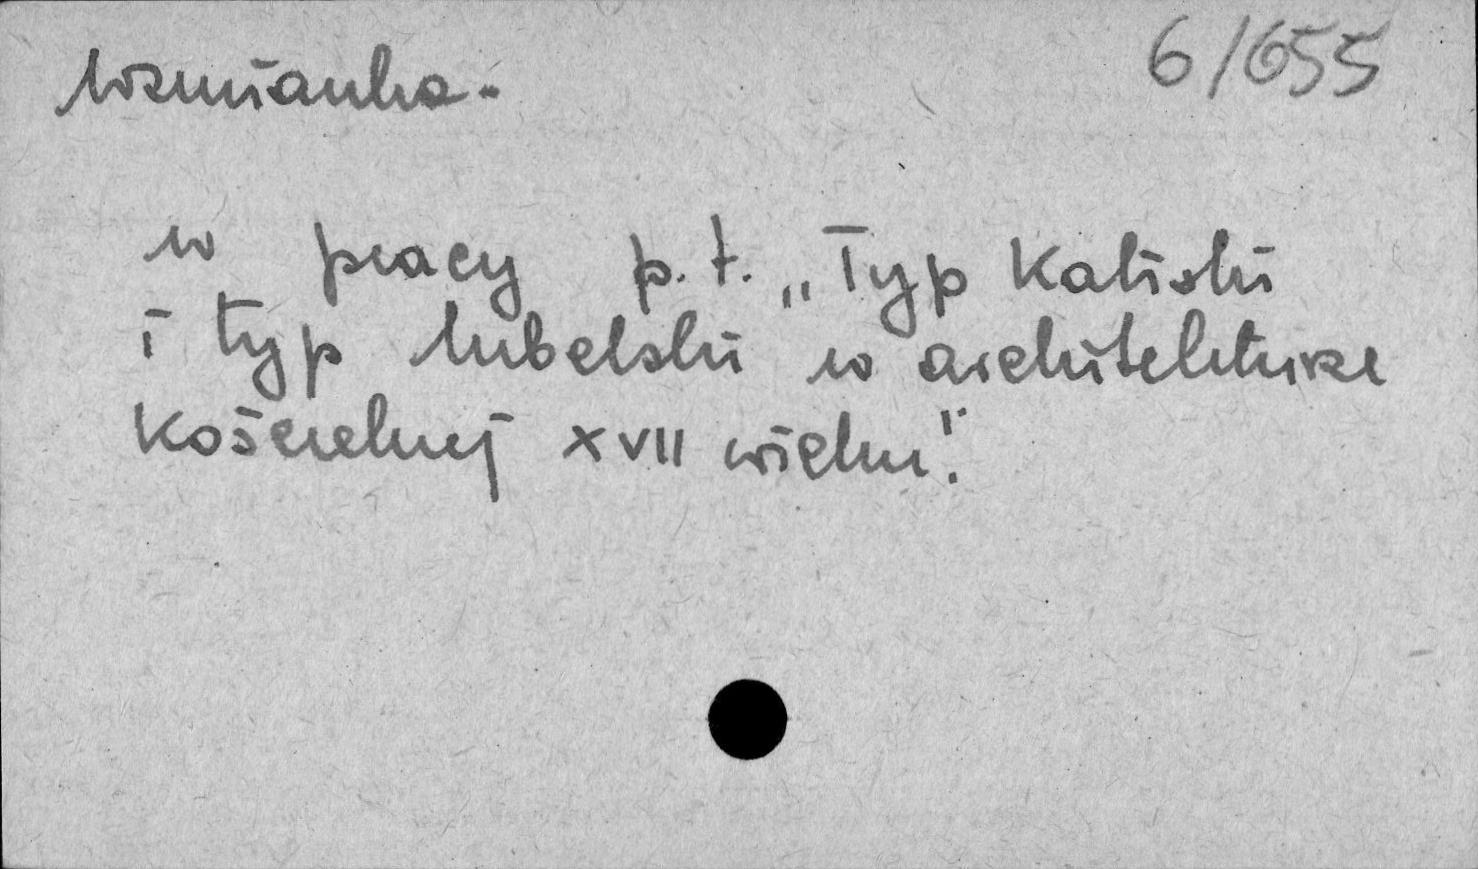 6/655
Wzmianka -
w pracy p.t. „Typ Kaliski
i typ lubelski w architekturze
Kościelnej XVII wieku".